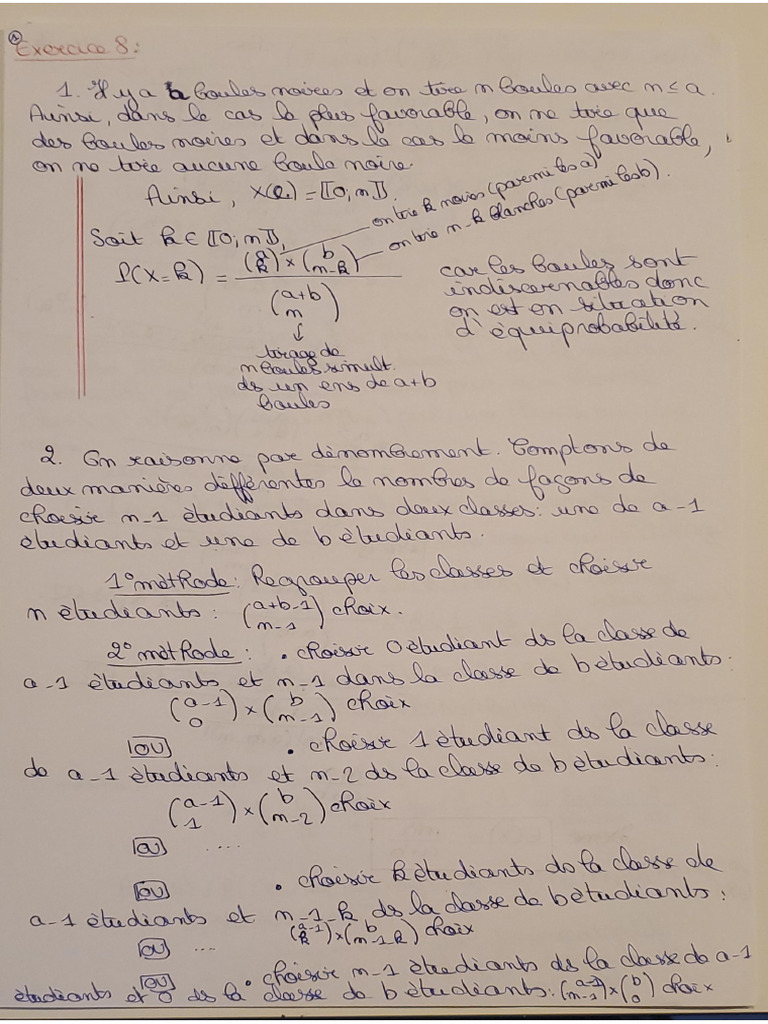 Exercice 8:
1. Il y a a boules noires et on tire n boules avec n ≤ a.
Ainsi, dans le cas le plus favorable, on ne tire que
des boules noires et dans le cas le moins favorable,
on ne tire aucune boule noire.
Ainsi, X(Ω) = [[0; n]].
on tire k noires (parmi les a)
on tire n-k blanches (parmi les b).
Soit k ∈ [[0; n]],
P(X=k) = \frac{\binom{a}{k} × \binom{b}{n-k}}{\binom{a+b}{n}}
car les boules sont
indiscernables donc
on est en situation
d'équiprobabilité.
tirage de
n boules simult.
ds un ens de a+b
boules
2. On raisonne par dénombrement. Comptons de
deux manières différentes le nombres de façons de
choisir n-1 étudiants dans deux classes: une de a-1
étudiants et une de b étudiants.
1° méthode: Regrouper les classes et choisir
n étudiants: \binom{a+b-1}{n-1} choix.
2° méthode: • choisir 0 étudiant ds la classe de
a-1 étudiants et n-1 dans la classe de b étudiants:
\binom{a-1}{0} × \binom{b}{n-1} choix
ou • choisir 1 étudiant ds la classe
de a-1 étudiants et n-2 ds la classe de b étudiants:
\binom{a-1}{1} × \binom{b}{n-2} choix
ou ....
ou • choisir k étudiants ds la classe de
a-1 étudiants et n-1-k ds la classe de b étudiants:
\binom{a-1}{k} × \binom{b}{n-1-k} choix
ou ...
ou • choisir n-1 étudiants ds la classe de a-1
étudiants et 0 ds la classe de b étudiants: \binom{a-1}{n-1} × \binom{b}{0} choix